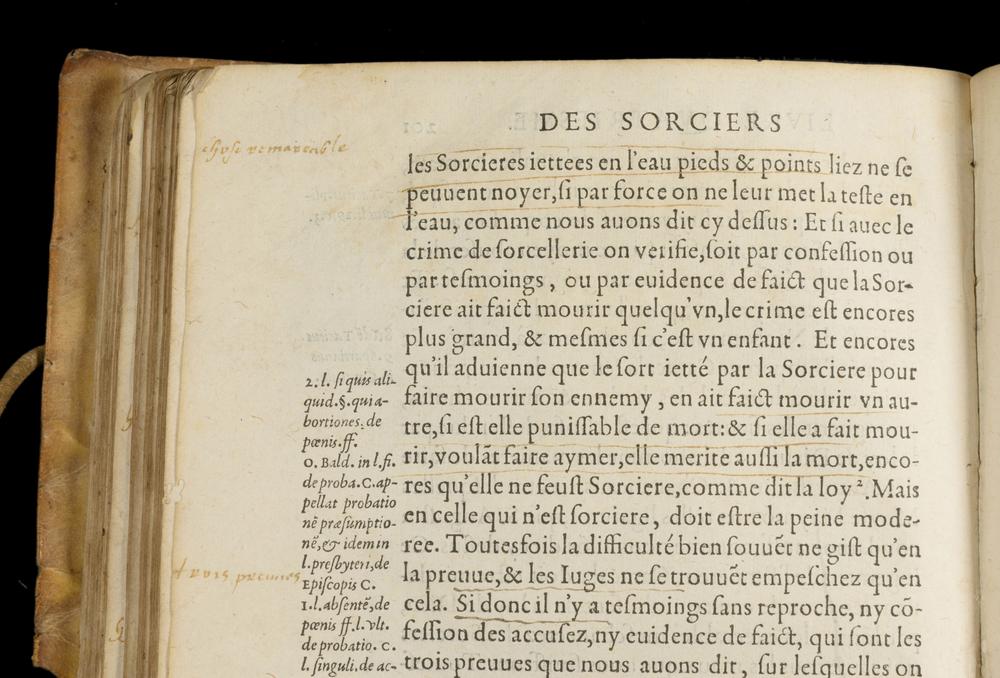 DES SORCIERS
chose remarcable
les Sorcieres iettees en l'eau pieds & points liez ne se
peuuent noyer, si par force on ne leur met la teste en
l'eau, comme nous auons dit cy dessus : Et si auec le
crime de sorcellerie on verifie, soit par confession ou
par tesmoings, ou par euidence de faict que la Sor-
ciere ait faict mourir quelqu'vn, le crime est encores
plus grand, & mesmes si c'est vn enfant. Et encores
qu'il aduienne que le sort ietté par la Sorciere pour
faire mourir son ennemy, en ait faict mourir vn au-
tre, si est elle punissable de mort: & si elle a fait mou-
rir, voulãt faire aymer, elle merite aussi la mort, enco-
res qu'elle ne feust Sorciere, comme dit la loy ². Mais
en celle qui n'est sorciere, doit estre la peine mode-
ree. Toutesfois la difficulté bien souuẽt ne gist qu'en
la preuue, & les Iuges ne se trouuẽt empeschez qu'en
cela. Si donc il n'y a tesmoings sans reproche, ny cõ-
fession des accusez, ny euidence de faict, qui sont les
trois preuues que nous auons dit, sur lesquelles on
2. l. si quis ali-
quid. §. qui a-
bortiones. de
pœnis. ff.
o. Bald. in l. fi.
de proba. C. ap-
pellat probatio
nẽ præsumptio-
nẽ, & idem in
l. presbyteri, de
Episcopis C.
1. l. absentẽ, de
pœnis ff. l. vlt.
de probatio. C.
l. singuli. de ac-
trois preuues